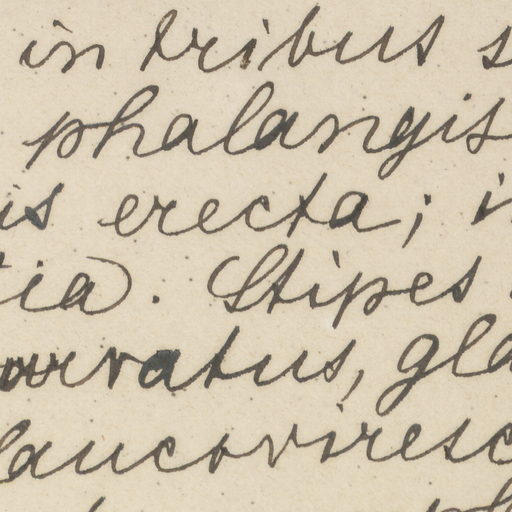 in tribus s
phalangis
is erecta; i
tia. Stipes
curvatus, gla
laucoviresc